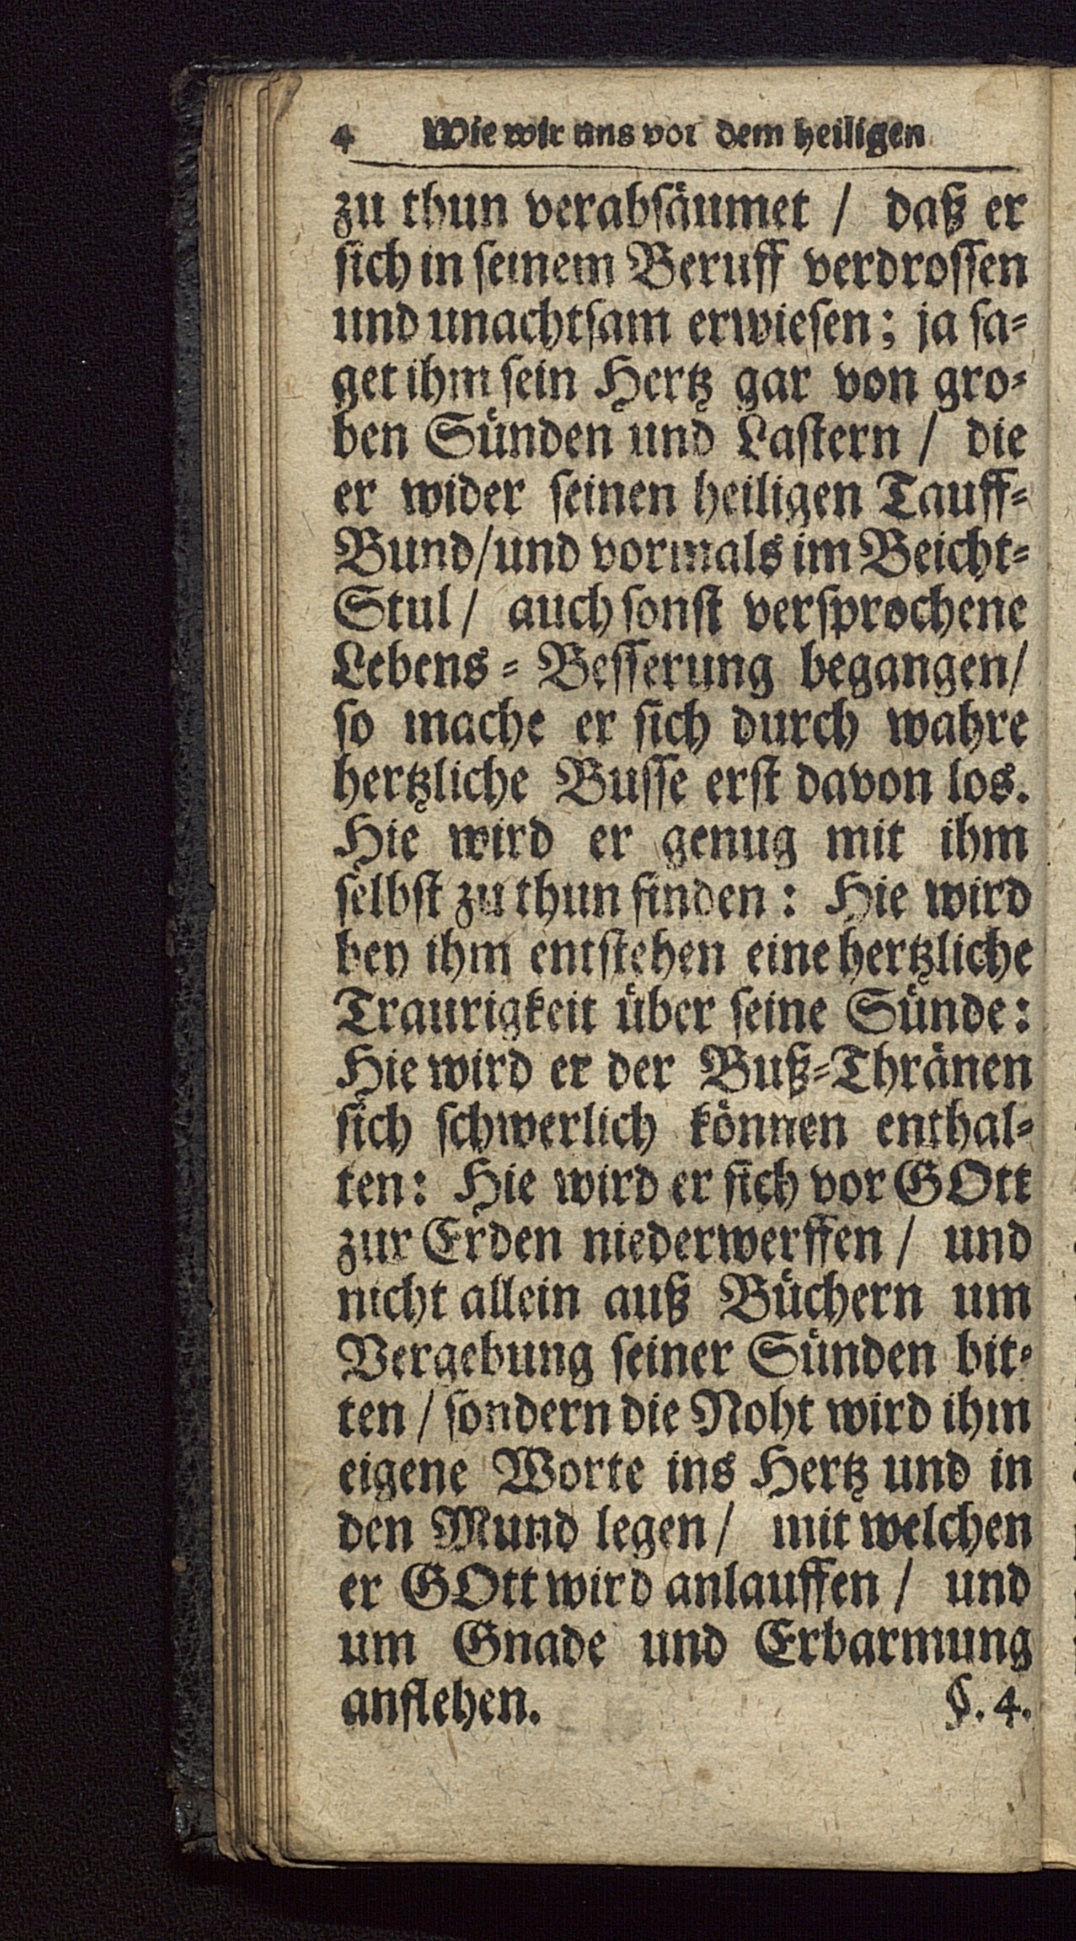 4 Wie wir uns vor dem heiligen
zu thun verabsäumet / daß er
sich in seinem Beruff verdrossen
und unachtsam erwiesen; ja sa-
get ihm sein Hertz gar von gro-
ben Sünden und Lastern / die
er wider seinen heiligen Tauff-
Bund/und vormals im Beicht-
Stul/ auch sonst versprochene
Lebens-Besserung begangen/
so mache er sich durch wahre
hertzliche Busse erst davon los.
Hie wird er genug mit ihm
selbst zu thun finden: Hie wird
bey ihm entstehen eine hertzliche
Traurigkeit über seine Sünde:
Hie wird er der Buß-Thränen
sich schwerlich können enthal-
ten: Hie wird er sich vor GOtt
zur Erden niederwerffen / und
nicht allein auß Büchern um
Vergebung seiner Sünden bit-
ten / sondern die Noht wird ihm
eigene Worte ins Hertz und in
den Mund legen/ mit welchen
er GOtt wird anlauffen / und
um Gnade und Erbarmung
anflehen. §. 4.